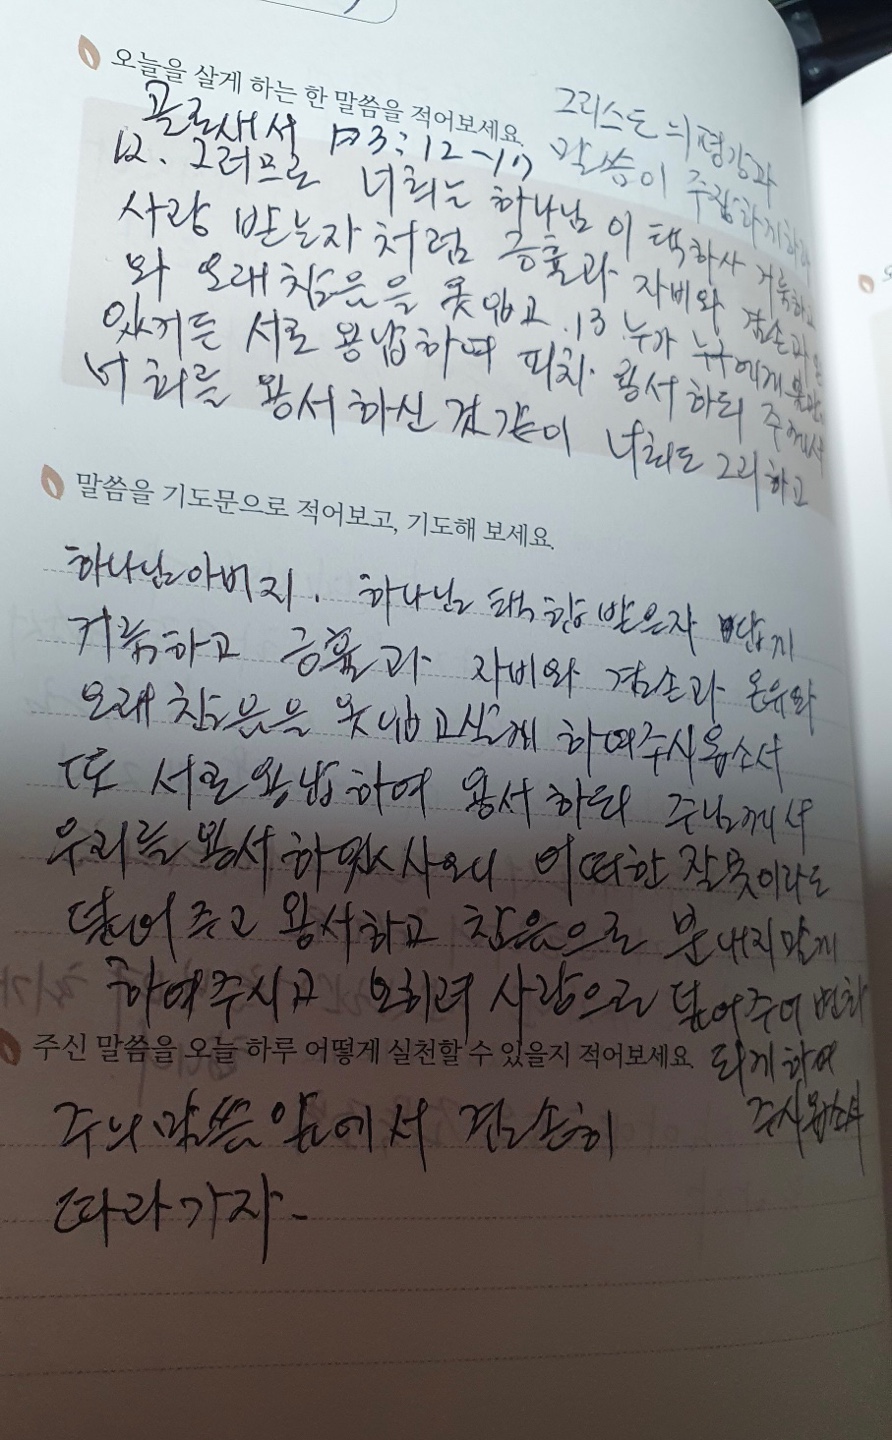 오늘을 살게 하는 한 말씀을 적어보세요.
그리스도의 평강과
말씀이 주장하게하라
골로새서 3:12-17
12. 그러므로 너희는 하나님이 택하사 거룩하고
사랑 받는자 처럼 긍휼과 자비와 겸손과 온
와 오래 참음을 옷입고. 13 누가 누구에게 불만이
있거든 서로 용납하며 피차 용서하되 주께서
너희를 용서하신 것 같이 너희도 그리하고
말씀을 기도문으로 적어보고, 기도해 보세요.
하나님아버지. 하나님 택함받은자 답게
거룩하고 긍휼과 자비와 겸손과 온유와
오래 참음을 옷입고살게 하여주시옵소서
또 서로용납하여 용서하되 주님께서
우리를 용서하였사오니 어떠한 잘못이라도
덮어 주고 용서하고 참음으로 분내지말게
하여주시고 오히려 사랑으로 덮어주어 변화
되게하여
주시옵소서
주신 말씀을 오늘 하루 어떻게 실천할 수 있을지 적어보세요.
주의 말씀앞에서 겸손히
따라가자.